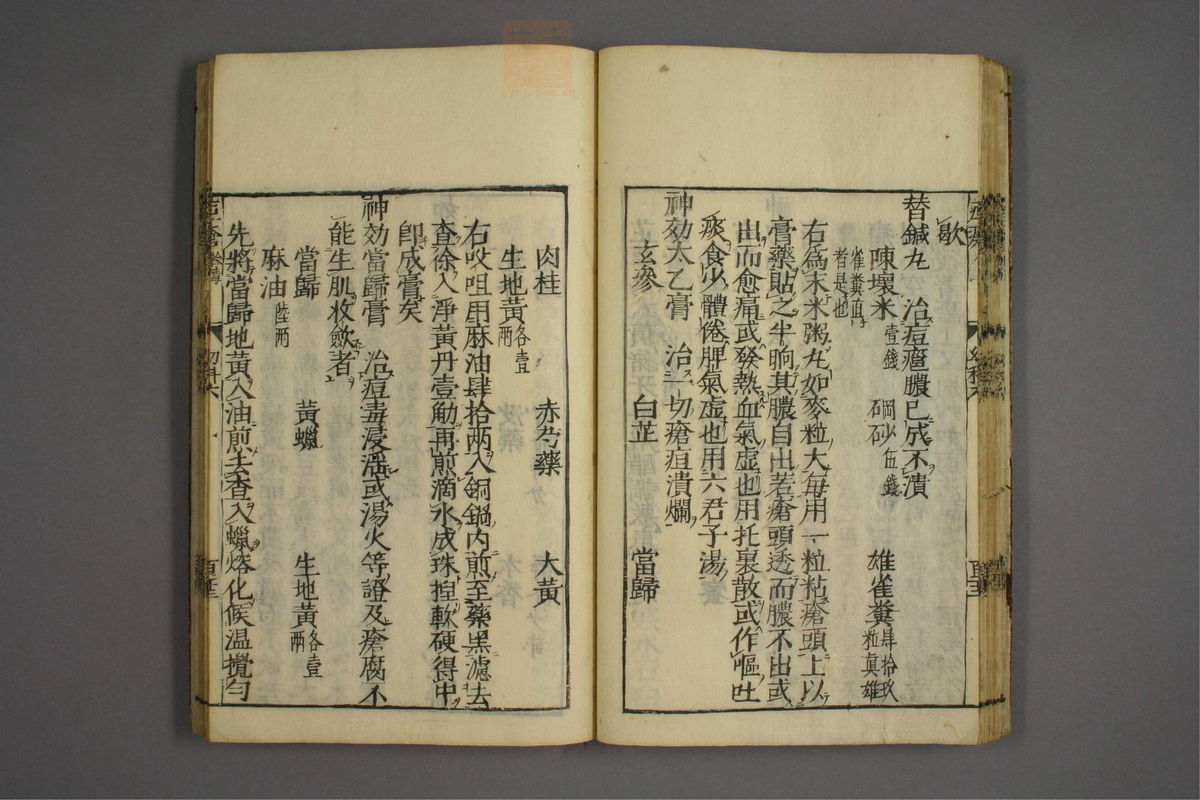 歇
替鍼丸　治痘癰膿已成不潰
陳壞米壹錢　硇砂伍錢　雄雀糞肆拾玖粒眞雄
雀糞直者是也
右爲末米粥丸如麥粒大每用一粒粘瘡頭上以
膏藥貼之半晌其膿自出若瘡頭透而膿不出或
出而愈痛或發熱血氣虛也用托裏散或作嘔吐
痰食少體倦脾氣虛也用六君子湯
神効太乙膏　治一切瘡疽潰爛
玄參　白芷　當歸
肉桂　赤芍藥　大黃
生地黃各壹兩
右㕮咀用麻油肆拾兩入銅鍋內煎至藥黑濾去
查徐入淨黃丹壹觔再煎滴水成珠揑軟硬得中
卽成膏矣
神効當歸膏　治痘毒浸淫或湯火等證及瘡腐不
能生肌收斂者
當歸　黃蠟　生地黃各壹兩
麻油陸兩
先將當歸地黃入油煎去查入蠟熔化候温攪勻